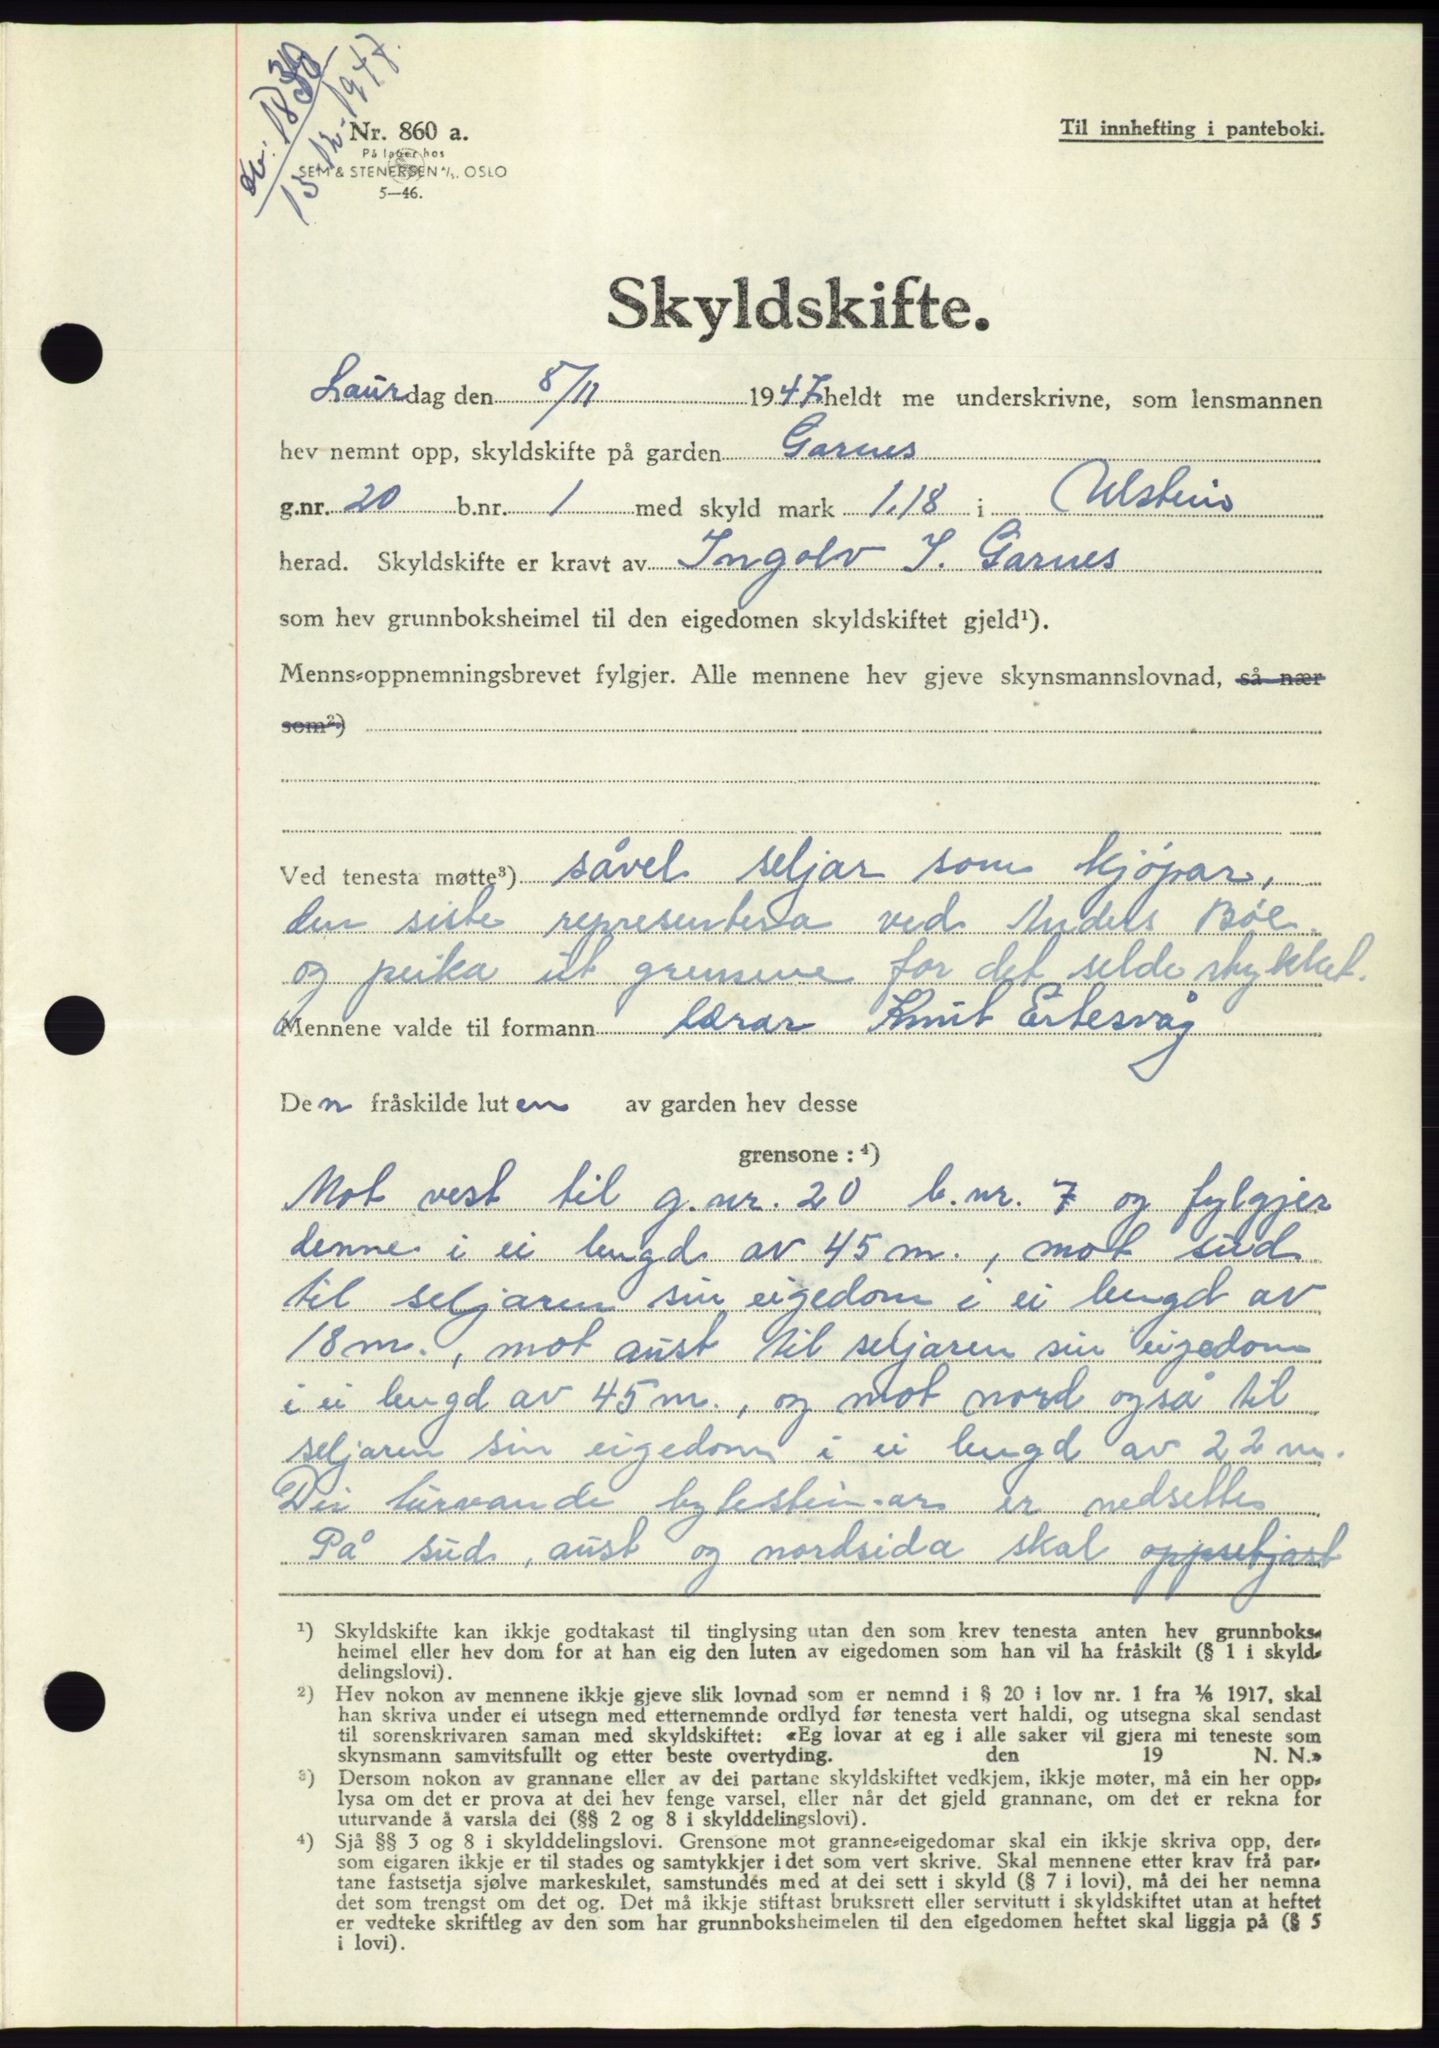 Nr. 1830
15-12-1947.
Nr. 860 a.
På lager hos
SEM & STENERSEN A/S, OSLO
5—46.
Til innhefting i panteboki.
Skyldskifte.
Laurdag den 8/11 1947 heldt me underskrivne, som lensmannen
hev nemnt opp, skyldskifte på garden Garnes
g.nr. 20 b.nr. 1 med skyld mark 1,18 i Ulstein
herad. Skyldskifte er kravt av Ingolv I. Garnes
som hev grunnboksheimel til den eigedomen skyldskiftet gjeld¹).
Menns-oppnemningsbrevet fylgjer. Alle mennene hev gjeve skynsmannslovnad, så nær
som²)
Ved tenesta møtte³) såvel seljar som kjøpar,
den siste representera ved Anders Bøe
og peika ut grensene for det selde stykket.
Mennene valde til formann lærar Knut Ertesvåg
Den fråskilde luten av garden hev desse
grensone : ⁴)
Mot vest til g.nr. 20 b.nr. 7 og fylgjer
denne i ei lengd av 45 m., mot sud
til seljaren sin eigedom i ei lengd av
18 m., mot aust til seljaren sin eigedom
i ei lengd av 45 m., og mot nord også til
seljaren sin eigedom i ei lengd av 22 m.
Dei turvande bytesteinar er nedsette
På sud, aust og nordsida skal oppsetjast
¹) Skyldskifte kan ikkje godtakast til tinglysing utan den som krev tenesta anten hev grunnboks-
heimel eller hev dom for at han eig den luten av eigedomen som han vil ha fråskilt (§ 1 i skyld-
delingslovi).
²) Hev nokon av mennene ikkje gjeve slik lovnad som er nemnd i § 20 i lov nr. 1 fra ⅙ 1917, skal
han skriva under ei utsegn med etternemnde ordlyd før tenesta vert haldi, og utsegna skal sendast
til sorenskrivaren saman med skyldskiftet: «Eg lovar at eg i alle saker vil gjera mi teneste som
skynsmann samvitsfullt og etter beste overtyding. den 19 N. N.»
³) Dersom nokon av grannane eller av dei partane skyldskiftet vedkjem, ikkje møter, må ein her opp-
lysa om det er prova at dei hev fenge varsel, eller når det gjeld grannane, om det er rekna for
uturvande å varsla dei (§§ 2 og 8 i skylddelingslovi).
⁴) Sjå §§ 3 og 8 i skylddelingslovi. Grensone mot granne-eigedomar skal ein ikkje skriva opp, der-
som eigaren ikkje er til stades og samtykkjer i det som vert skrive. Skal mennene etter krav frå par-
tane fastsetja sjølve markeskilet, samstundes med at dei sett i skyld (§ 7 i lovi), må dei her nemna
det som trengst om det og. Det må ikkje stiftast bruksrett eller servitutt i skyldskiftet utan at heftet
er vedteke skriftleg av den som har grunnboksheimelen til den eigedomen heftet skal liggja på (§ 5
i lovi).